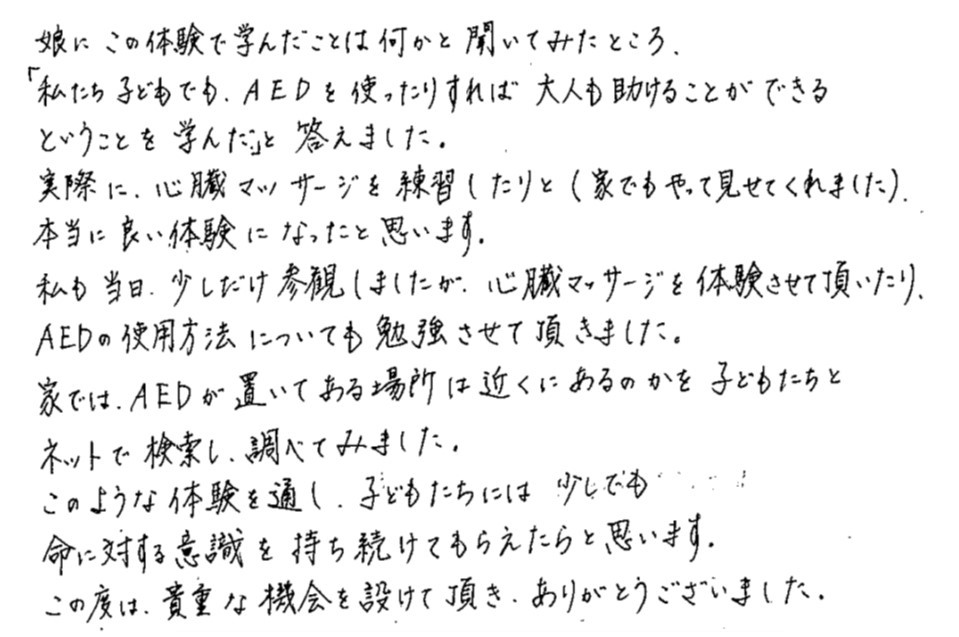 娘に この体験で学んだことは何かと聞いてみたところ、
「私たち子どもでも、AEDを使ったりすれば 大人も助けることができる
ということを 学んだ」と 答えました。
実際に、心臓マッサージを練習したりと(家でもやって見せてくれました)、
本当に良い体験になったと思います。
私も当日、少しだけ参観しましたが、心臓マッサージを体験させて頂いたり、
AEDの使用方法についても勉強させて頂きました。
家では、AEDが置いてある場所は近くにあるのかを子どもたちと
ネットで検索し、調べてみました。
このような体験を通し、子どもたちには 少しでも
命に対する意識を持ち続けてもらえたらと思います。
この度は、貴重な機会を設けて頂き、ありがとうございました。